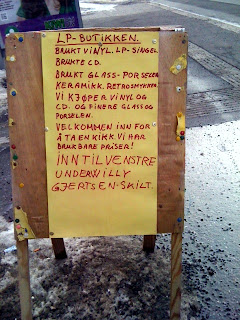 LP-BUTIKKEN.
BRUKT VINYL. LP-SINGEL.
BRUKTE CD.
BRUKT GLASS-PORSELEN
KERAMIKK. RETROSMYKKER.
VI KJØPER VINYL OG
CD. OG FINERE GLASS OG
PORSELEN.
VELKOMMEN INN FOR
Å TA EN KIKK. VI HAR
BRUKBARE PRISER!
INNTILVENSTRE
UNDERWILLY
GJERTSEN-SKILT.